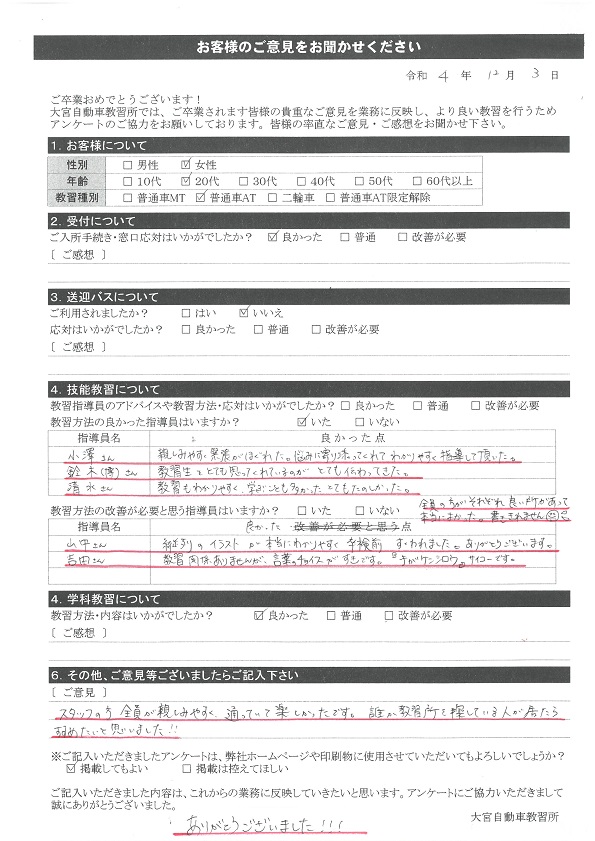 お客様のご意見をお聞かせください
令和 4 年 12 月 3 日
ご卒業おめでとうございます！
大宮自動車教習所では、ご卒業されます皆様の貴重なご意見を業務に反映し、より良い教習を行うため
アンケートのご協力をお願いしております。皆様の率直なご意見・ご感想をお聞かせ下さい。
1. お客様について
性別 □ 男性 ☑ 女性
年齢 □ 10代 ☑ 20代 □ 30代 □ 40代 □ 50代 □ 60代以上
教習種別 □ 普通車MT ☑ 普通車AT □ 二輪車 □ 普通車AT限定解除
2. 受付について
ご入所手続き・窓口応対はいかがでしたか？ ☑ 良かった □ 普通 □ 改善が必要
〔 ご感想 〕
3. 送迎バスについて
ご利用されましたか？ □ はい ☑ いいえ
応対はいかがでしたか？ □ 良かった □ 普通 □ 改善が必要
〔 ご感想 〕
4. 技能教習について
教習指導員のアドバイスや教習方法・応対はいかがでしたか？ □ 良かった □ 普通 □ 改善が必要
教習方法の良かった指導員はいますか？ ☑ いた □ いない
指導員名 良かった点
小澤さん 親しみやすく緊張がほぐれた。悩みに寄り添ってくれてわかりやすく指導して頂いた。
鈴木(博)さん 教習生をとても思ってくれているのがとても伝わってきた。
清水さん 教習もわかりやすく、学ぶことも多かった とてもたのしかった。
全員の方がそれぞれ良い所があって
本当によかった。書ききれません
教習方法の改善が必要と思う指導員はいますか？ □ いた □ いない
指導員名 良かった 改善が必要と思う点
山中さん 縦列のイラストが本当にわかりやすく卒検前 すくわれました。ありがとうございます。
吉田さん 教習 ありませんが、言葉のチョイスがすきです。『チがケンシロウ』サイコーです。
4. 学科教習について
教習方法・内容はいかがでしたか？ ☑ 良かった □ 普通 □ 改善が必要
〔 ご感想 〕
6. その他、ご意見等ございましたらご記入下さい
〔 ご意見 〕
スタッフの方全員が親しみやすく、通っていて楽しかったです。誰か教習所を探している人が居たら
勧めたいと思いました!!
※ご記入いただきましたアンケートは、弊社ホームページや印刷物に使用させていただいてもよろしいでしょうか？
☑ 掲載してもよい □ 掲載は控えてほしい
ご記入いただきました内容は、これからの業務に反映していきたいと思います。アンケートにご協力いただきまして
誠にありがとうございました。
大宮自動車教習所
ありがとうございました!!!